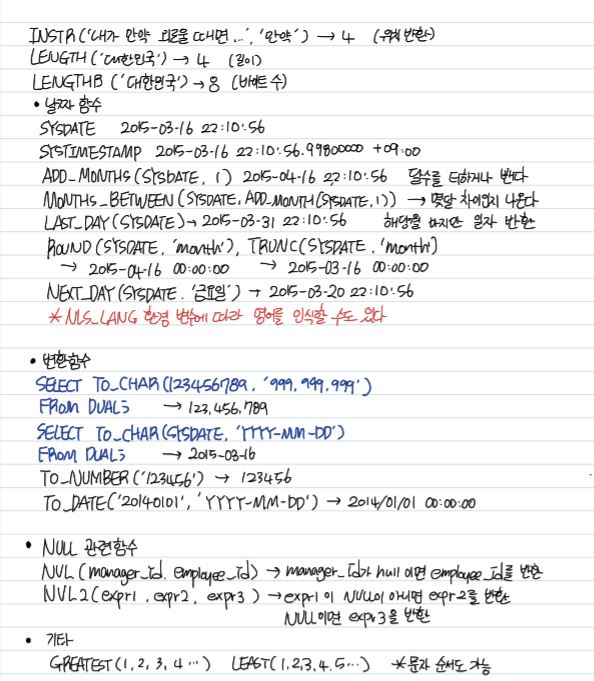 INSTR('내가 만약 외로울 때내면 ...', '만약') → 4 (위치 반환)
LENGTH('대한민국') → 4 (길이)
LENGTHB ('대한민국') → 8 (바이트 수)
• 날짜 함수
SYSDATE 2015-03-16 22:10:56
SYSTIMESTAMP 2015-03-16 22:10:56.99800000 +09:00
ADD_MONTHS (SYSDATE, 1) 2015-04-16 22:10:56 달수를 더하거나 뺀다
MONTHS_BETWEEN (SYSDATE, ADD_MONTH(SYSDATE, 1)) → 몇달 차이인지 나온다
LAST_DAY (SYSDATE) → 2015-03-31 22:10:56 해당월 마지막 일자 반환
ROUND (SYSDATE, 'month'), TRUNC(SYSDATE, 'month')
→ 2015-04-16 00:00:00 → 2015-03-16 00:00:00
NEXT_DAY (SYSDATE, '금요일') → 2015-03-20 22:10:56
* NLS_LANG 환경 변수에 따라 영어를 인식할 수도 있다
• 변환함수
SELECT TO_CHAR (123456789, '999,999,999')
FROM DUAL; → 123,456,789
SELECT TO_CHAR (SYSDATE, 'YYYY-MM-DD')
FROM DUAL; → 2015-03-16
TO_NUMBER ('123456') → 123456
TO_DATE ('20140101', 'YYYY-MM-DD') → 2014/01/01 00:00:00
• NULL 관련함수
NVL (manager_id, employee_id) → manager_id가 null 이면 employee_id를 반환
NVL2 (expr1, expr2, expr3) → expr1이 NULL이 아니면 expr2를 반환
NULL이면 expr3을 반환
• 기타
GREATEST (1, 2, 3, 4 ...) LEAST (1,2,3,4,5...) * 문자 순서도 가능